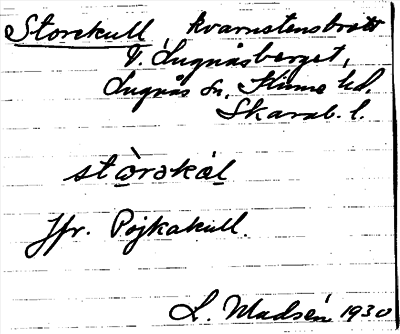 Storekull, kvarnstensbrott
i Lugnåsberget,
Lugnås sn, Kinne hd.
Skarab. l.
stòrəkál
Jfr. Pojkakull.
L. Madsén 1930